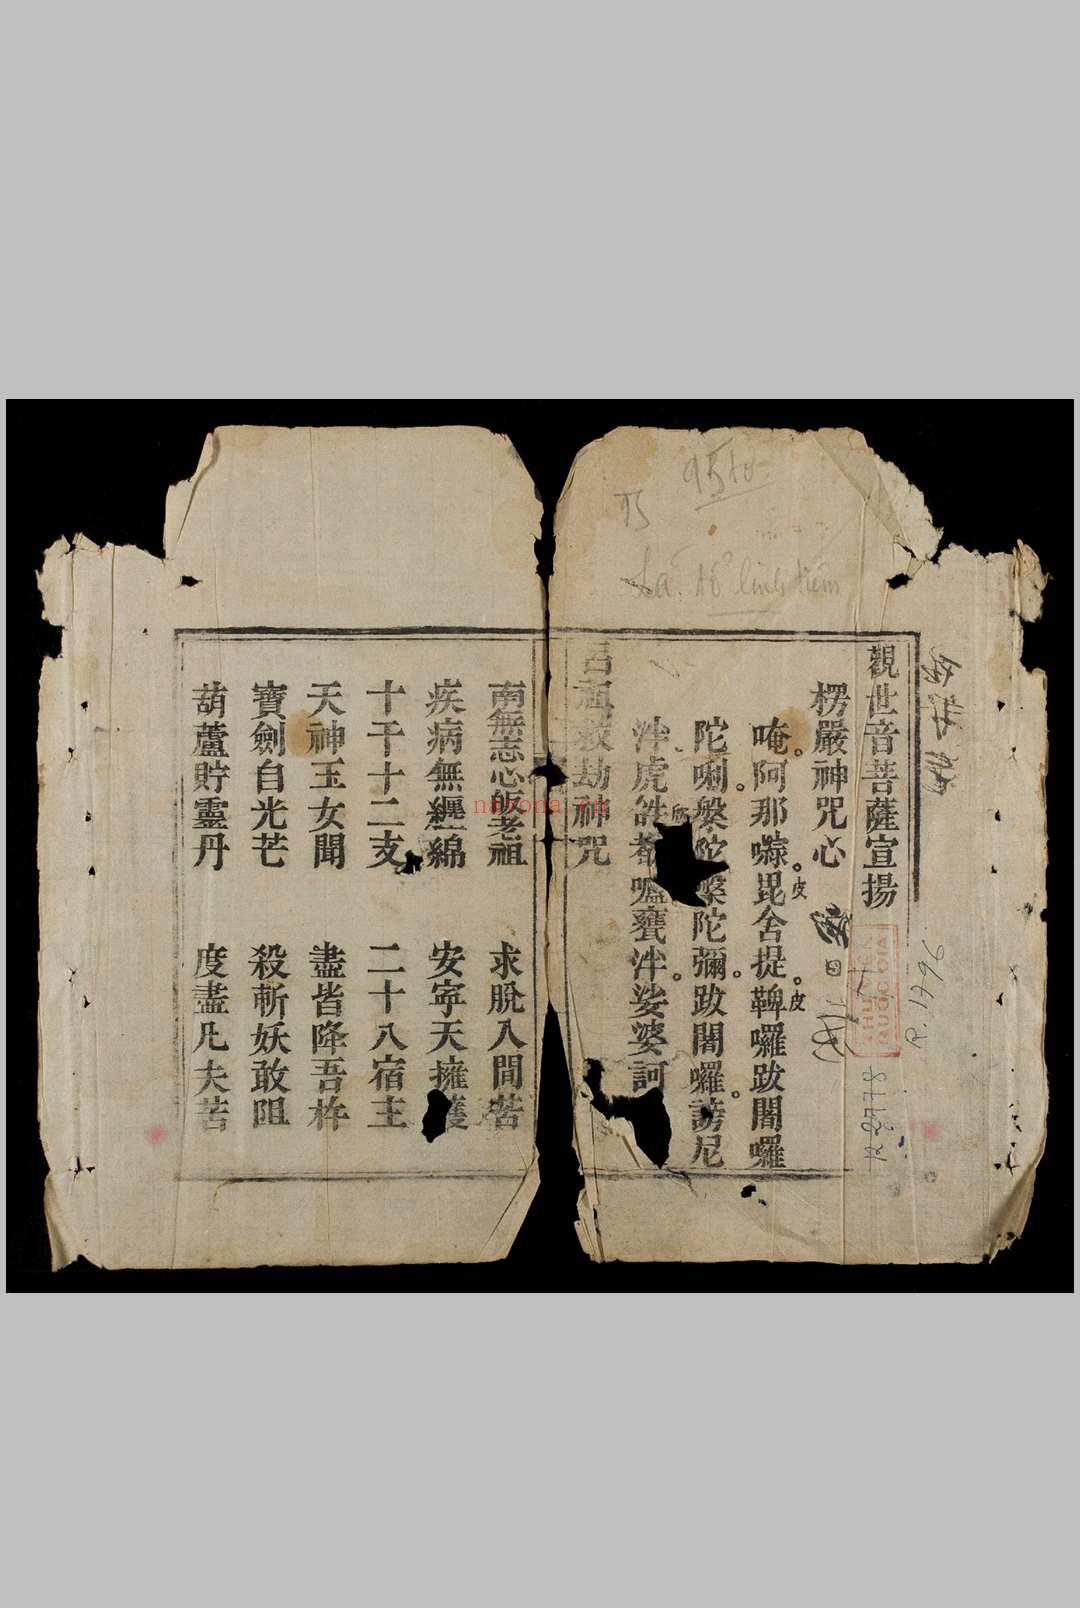 觀世音菩薩宣揚
楞嚴神咒心
唵阿那㘑毘舍提鞞囉跋闍囉
皮
皮
陀唎槃陀槃陀彌跋闍囉謗尼
泮虎𤙖都嚧甕泮娑婆訶
呂祖救劫神咒
南無志心皈老祖 求脫人間苦
疾病無纏綿 安寧天擁護
十干十二支 二十八宿主
天神玉女聞 盡皆降吾杵
寶劍自光芒 殺斬妖敢阻
葫蘆貯靈丹 度盡凡夫苦
9510
Lá tổ linh tiêm
R.1496
THƯ VIỆN
QUỐC GIA